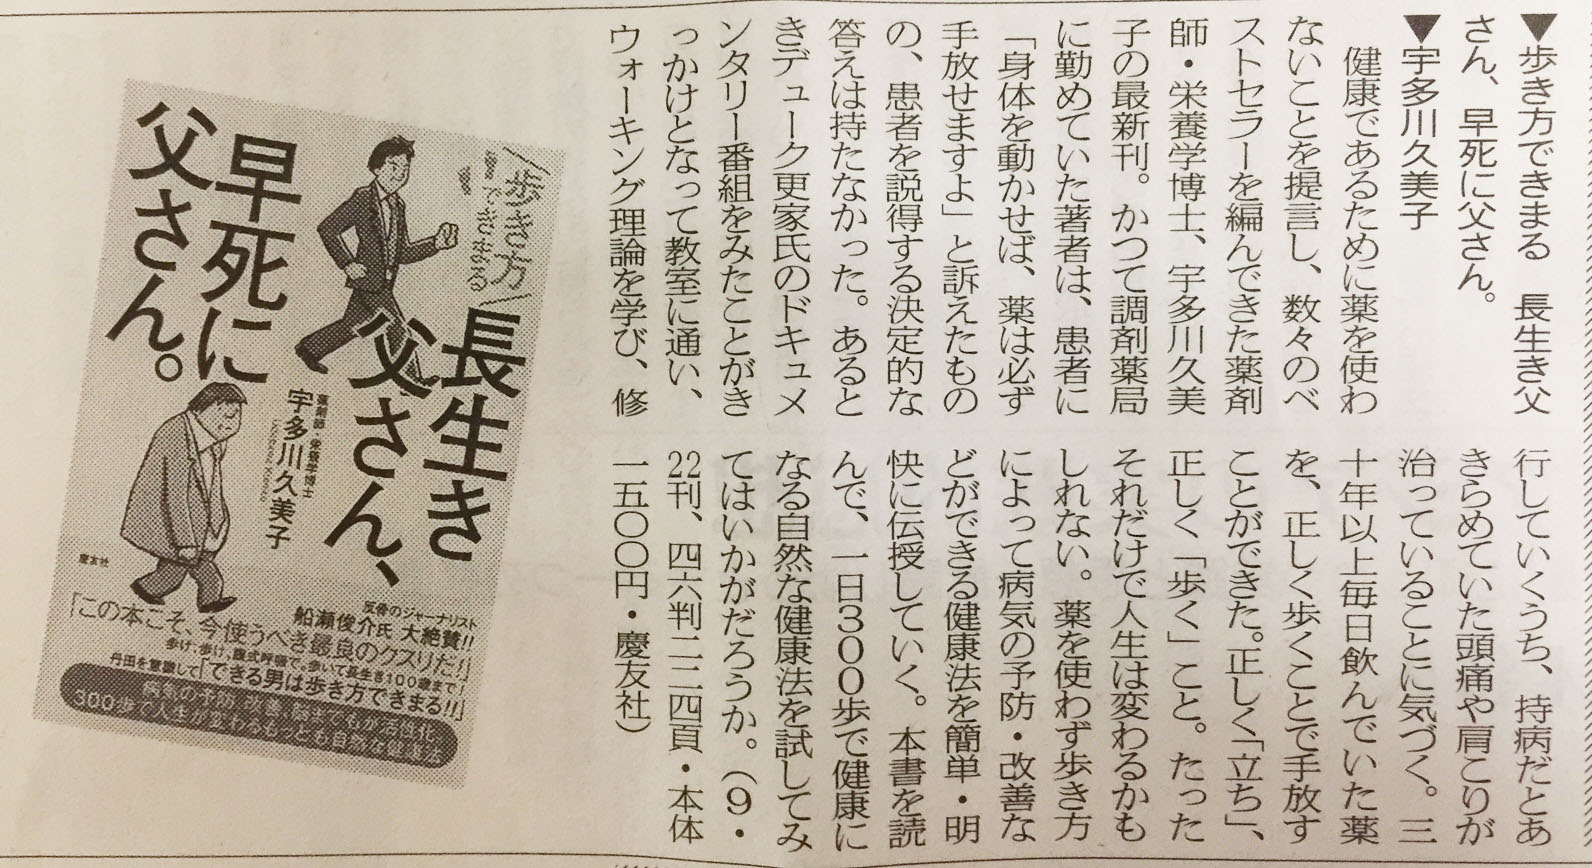 ▼歩き方できまる　長生き父
さん、早死に父さん。
▼宇多川久美子
　健康であるために薬を使わ
ないことを提言し、数々のベ
ストセラーを編んできた薬剤
師・栄養学博士、宇多川久美
子の最新刊。かつて調剤薬局
に勤めていた著者は、患者に
「身体を動かせば、薬は必ず
手放せますよ」と訴えたもの
の、患者を説得する決定的な
答えは持たなかった。あると
きデューク更家氏のドキュメ
ンタリー番組をみたことがき
っかけとなって教室に通い、
ウォーキング理論を学び、修
行していくうち、持病だとあ
きらめていた頭痛や肩こりが
治っていることに気づく。三
十年以上毎日飲んでいた薬
を、正しく歩くことで手放す
ことができた。正しく「立ち」、
正しく「歩く」こと。たった
それだけで人生は変わるかも
しれない。薬を使わず歩き方
によって病気の予防・改善な
どができる健康法を簡単・明
快に伝授していく。本書を読
んで、一日３００歩で健康に
なる自然な健康法を試してみ
てはいかがだろうか。（９・
22刊、四六判二二四頁・本体
一五〇〇円・慶友社）
歩き方
できまる
長生き
父さん、
早死に
父さん。
薬剤師 栄養学博士
宇多川久美子
慶友社
反骨のジャーナリスト
船瀬俊介氏 大絶賛!!
「この本こそ、今使うべき最良のクスリだ!」
歩け、歩け、腹式呼吸で。歩いて長生き100歳まで!
丹田を意識して「できる男は歩き方できまる!!」
300歩で人生が変わるもっとも自然な健康法